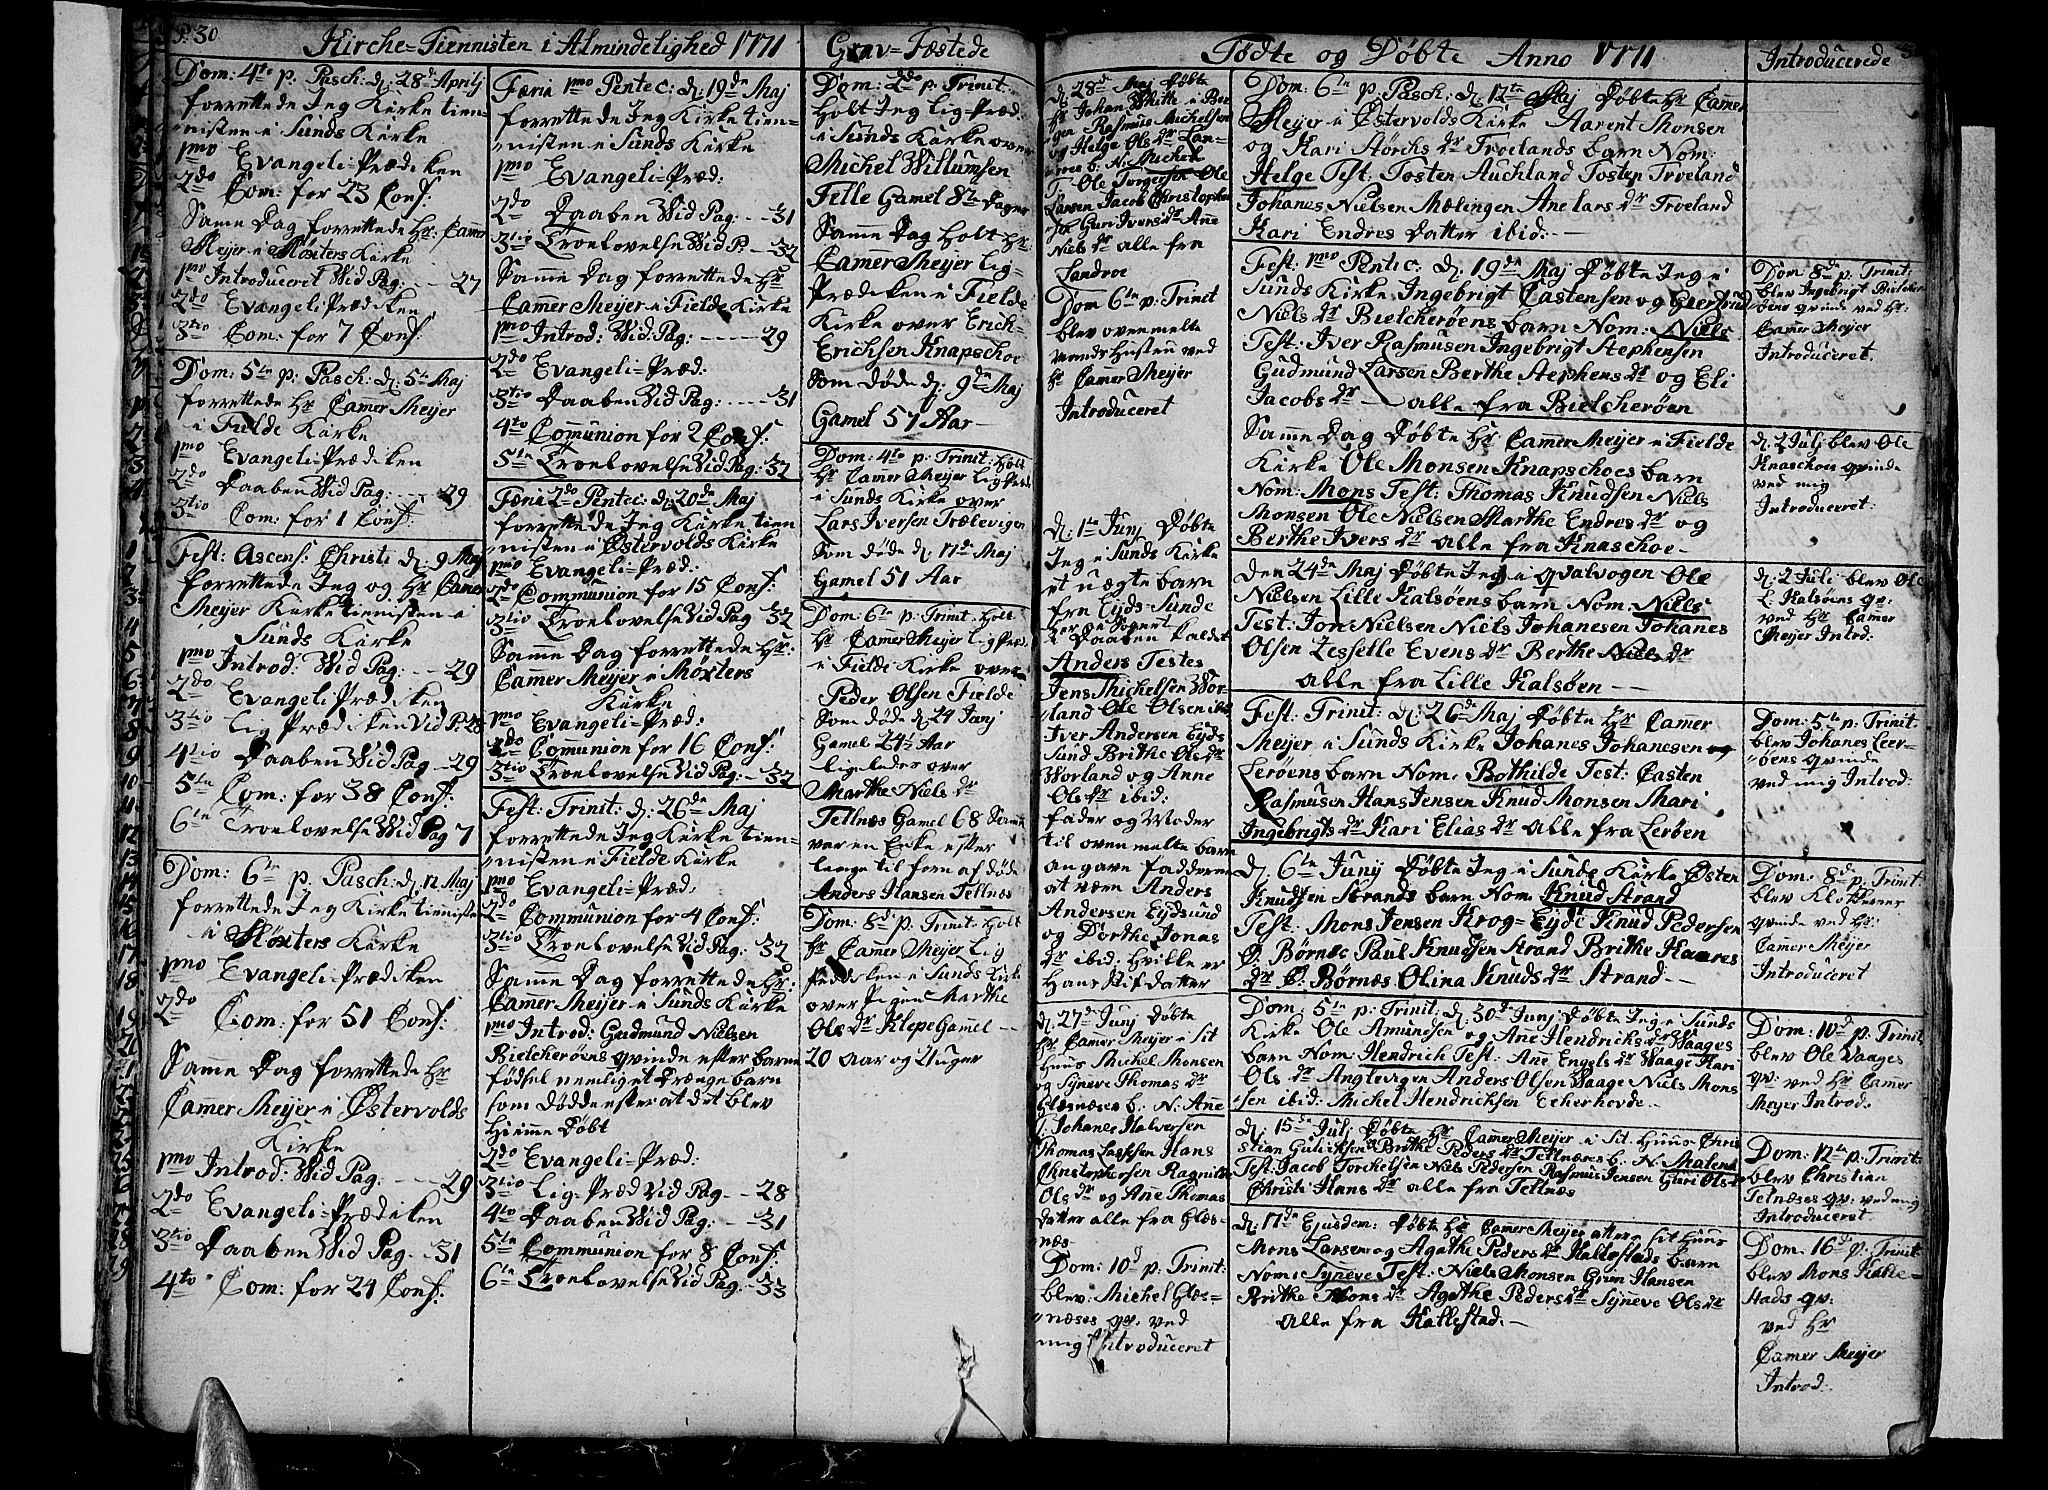 P: 30
Kirche-Tiennisten i Almindelighed 1771
Dom: 4to p. Pasch: d: 28de Aprilj
forrettede Jeg Kirke tien-
nisten i Sunds Kirke
1mo Evangeli-Prædiken
2do Com: for 23 Conf:
Samme Dag forrettede Hr. Camer
Meijer i Møxters Kirke
1mo Introduceret Vid Pag: --- 27
2do Evangeli-Prædiken
3tio Com: for 7 Conf:
Dom: 5te p: Pasch: d: 5te Maj
forrettede Hr Camer Meijer
i Fielde Kirke
1mo Evangeli-Prædiken
2do Daaben Vid Pag: --- 29
3tio Com: for 1 Conf:
Fest: Ascens: Christi d: 9 Maj
forrettede Jeg og Hr Camer
Meijer Kirke tiennisten i
Sunds Kirke
1mo Introd: Vid Pag: -- 29
2do Evangeli Prædiken
3tio Lig Prædiken Vid P: 28
4tio Daaben Vid Pag -- 29
5te Com: for 38 Conf:
6te Troelovelse Vid Pag 7
Dom: 6te p. Pasch: d: 12 Maj
forrettede Jeg Kirke tienniste
i Møxters Kirke
1mo Evangeli-Prædiken
2do Com: for 51 Conf:
Samme Dag forrettede Hr
Camer Meijer i Østervolds
Kirke
1mo Introd: Vid Pag: --- 29
2do Evangeli-Prædiken
3tio Daaben Vid Pag - 31
4to Com: for 24 Conf:
Færia 1mo Pentec: d: 19de Maj
forrettede Jeg Kirke tien-
nisten i Sunds Kirke
1mo Evangeli-Præd:
2do Daaben Vid Pag: -- 31
3tio Troelovelse Vid P: - 32
Samme Dag forrettede Hr
Camer Meijer i Fielde Kirke
1mo Introd: Vid Pag: ----- 29
2do Evangeli-Præd:
3tio Daaben Vid Pag: ---- 31
4to Communion for 2 Conf:
5te Troelovelse Vid Pag: 32
Færia 2do Pentec: d: 20de Maj
forrettede Jeg Kirke tien
nisten i Østervolds Kirke
1mo Evangeli-Præd:
2do Communion for 15 Conf:
3tio Troelovelse Vid Pag 32
Samme Dag forrettede Hr:
Camer Meijer i Møxters
Kirke
1mo Evangeli-Præd:
2do Communion for 16 Conf:
3tio Troelovelse Vid Pag: - 32
Fest: Trinit: d: 26de Maj
forrettede Jeg Kirke tien-
nisten i Fielde Kirke
1mo Evangeli-Præd:
2do Communion for 4 Conf:
3tio Troelovelse Vid Pag: 32
Samme Dag forrettede Hr:
Camer Meijer i Sunds Kirke
1mo Introd: Gudmund Nielsen
Bielcherøens qvinde efter barne
fødsel nemlig et Drænge barn
som Døde efter at det blev
hiemme Døbt
2do Evangeli-Præd:
3tio Lig-Præd Vid Pag -- 28
4to Daaben Vid Pag: -- 31
5te Communion for 8 Conf:
6te Troelovelse Vid Pag: - 33
Grav-Fæstede
Dom: 2do p: Trinit:
holt Jeg Lig-Præd:
i Sunds Kirke over
Michel Willumsen
Telle Gamel 82 Dage
Samme Dag holt Hr
Camer Meijer Lig-
Prædiken i Fielde
Kirke over Erich
Erichsen Knapschoe
Som døde d: 9de Maj
Gamel 57 Aar
Dom: 4to p: Trinit: holt
Hr Camer Meijer Lig Præd
i Sunds Kirke over
Lars Iversen Trælevigen
Som døde d: 17de Maj
Gamel 51 Aar
Dom: 6te p: Trinit: holt
Hr Camer Meijer Lig Præd
i Fielde Kirke over
Peder Olsen Fielde
Som døde d: 24 Junj
Gamel 24½ Aar
ligeledes over
Marthe Niels dr
Tellnæs Gamel 68
var en Enke efter
lange til forn af døde
Anders Hansen Tellnæs
Dom: 8de p: Trinit: holt
Hr Camer Meijer Lig
Prediken i Sunds Kirke
over Pigen Marthe
Ols dr Klepe Gamel --
20 aar og Uuger
Fødte og Døbte Anno 1771
d: 28de Maj Døbte
Hr Johan Whitte i Ber
gen Rasmus Michelsen
og Helge Ols dr Lan-
roes b: N: Michel
T: Ole Torgersen Ole
Larsen Jacob Christophersen
Guri Ivers dr Ane
Niels dr alle fra
Landroe
Dom 6te p: Trinit
blev ovenmelte
Mands Hustru ved
Hr Camer Meijer
Introduceret
d: 1te Junj Døbte
Jeg i Sunds Kirke
et uægte barn
fra Eyds-Sunde
her i Sognet
i Daaben kaldet
Anders Testes
Jens Michelsen Vor-
land Ole Olsen ibid
Iver Andersen Eyds
Sund Brithe Ols dr
Vorland og Anne
Ols dr ibid:
fader og Moder
til ovenmelte barn
angave fadderne
at være Anders
Andersen Eydsund
og Dorthe Jonas
dr ibid: hville er
Hans Rif datter
d: 27de Junj Døbte
Hr Camer Meijer i sit
Huus Michel Monsen
og Syneve Thomas dr
Glesnæses b: N: Ane
T: Johanes Halversen
Thomas Lassesen Hans
Christophersen Ragnilde
Ols dr og Ane Thomas
datter alle fra Glæs-
næs
Dom: 10d p: Trinit:
blev Michel Glæs-
næses qv: ved
mig Introduceret
Dom: 6te p: Pasch: d: 12te Maj Døbte Hr Camer
Meijer i Østervolds Kirke Aarent Monsen
og Kari Størchs dr Troelands barn Nom:
Helge Test: Tosten Auchland Tosten Troeland
Johanes Nielsen Mælingen Ane Lars dr Troeland
Kari Endres Datter ibid: --
Fest: 1mo Pentec: d: 19de Maj Døbte Jeg i
Sunds Kirke Ingebrigt Castensen og Giertrud
Niels dr Bielcherøens barn Nom: Niels
Test: Iver Rasmusen Ingebrigt Stephensen
Gudmund Larsen Berthe Stephens dr og Eli
Jacobs dr -- alle fra Bielcherøen
Samme Dag Døbte Hr Camer Meijer i Fielde
Kirke Ole Monsen Knapschoes barn
Nom: Mons Test: Thomas Knudsen Niels
Monsen Ole Nielsen Marthe Endres dr og
Berthe Ivers dr alle fra Knaschoe -
Den 24de Maj Døbte Jeg i Qvalvogen Ole
Nielsen Lille Kalsøens barn Nom: Niels
Test: Jon Nielsen Niels Johanesen Johanes
Olsen Zesselle Evens dr Berthe Niels dr
alle fra Lille Kalsøen --
Fest: Trinit: d: 26de Maj Døbte Hr Camer
Meijer i Sunds Kirke Johanes Johanesen og
Lerøens barn Nom: Bothilde Test: Casten
Rasmusen Hans Jensen Knud Monsen Mari
Ingebrigts dr Kari Elias dr alle fra Lerøen
d: 6te Junj Døbte Jeg i Sunds Kirke Østen
Knudsen Strands barn Nom: Knud Strand
Test: Mons Jensen Krog-Eyde Knud Pedersen
Ø: Børnæs Paul Knudsen Strand Brithe Haares
dr Ø: Børnæs Olina Knuds dr Strand --
Dom: 5te p: Trinit: d: 30de Junj Døbte Jeg i Sunds
Kirke Ole Amundsen og Ane Hendrichs dr Vaages
barn Nom: Hendrich Test: Ane Engels dr Vaage Kari
Ols dr Angltevigen Anders Olsen Vaage Niels Mons
sen ibid: Michel Hendrichsen Eckerhovde --
d: 15de Julj Døbte Hr Camer Meijer i sit Huus Chri
stian Gulichsen Brithe Peders dr Tellnæses b: N: Malene
Test: Jacob Torchelsen Niels Pedersen Rasmus Jensen Guri Ols dr
Christi Hans dr alle fra Tellnæs
d: 17de Ejusdem: Døbte Hr Camer Meijer atter i sit Huus
Mons Larsen og Agathe Peders dr Kallestads barn
Nom: Syneve Test: Niels Monsen Grim Hansen
Brithe Mons dr Agathe Peders dr Syneve Ols dr
alle fra Kallestad. --
Introducerede
Dom 8de p: Trinit:
blev Ingebrigt Bielcher
øens qvinde ved Hr:
Camer Meijer
Introduceret.
d: 2 Julj blev Ole
Knaschoes qvinde
ved mig
Introduceret:
d: 2 Juli blev Ole
L: Kalsøens qv:
ved Hr Camer
Meijer Introd:
Dom: 5te p: Trinit:
blev Johanes Leer-
øens qvinde
ved mig Introd:
Dom: 8de p: Trinit:
blev Klokkerens
qvinde ved Hr:
Camer Meijer
Introduceret
Dom: 10d p: Trinit:
blev Ole Vaages
qv: ved Hr Camer
Meijer Introd:
Dom: 12te p: Trinit:
blev Christian
Telnæses qv: ved mig
Introduceret
Dom. 16d p: Trinit:
blev Mons Kalle-
stads qv:
ved Hr
Camer Meijer
Introd: